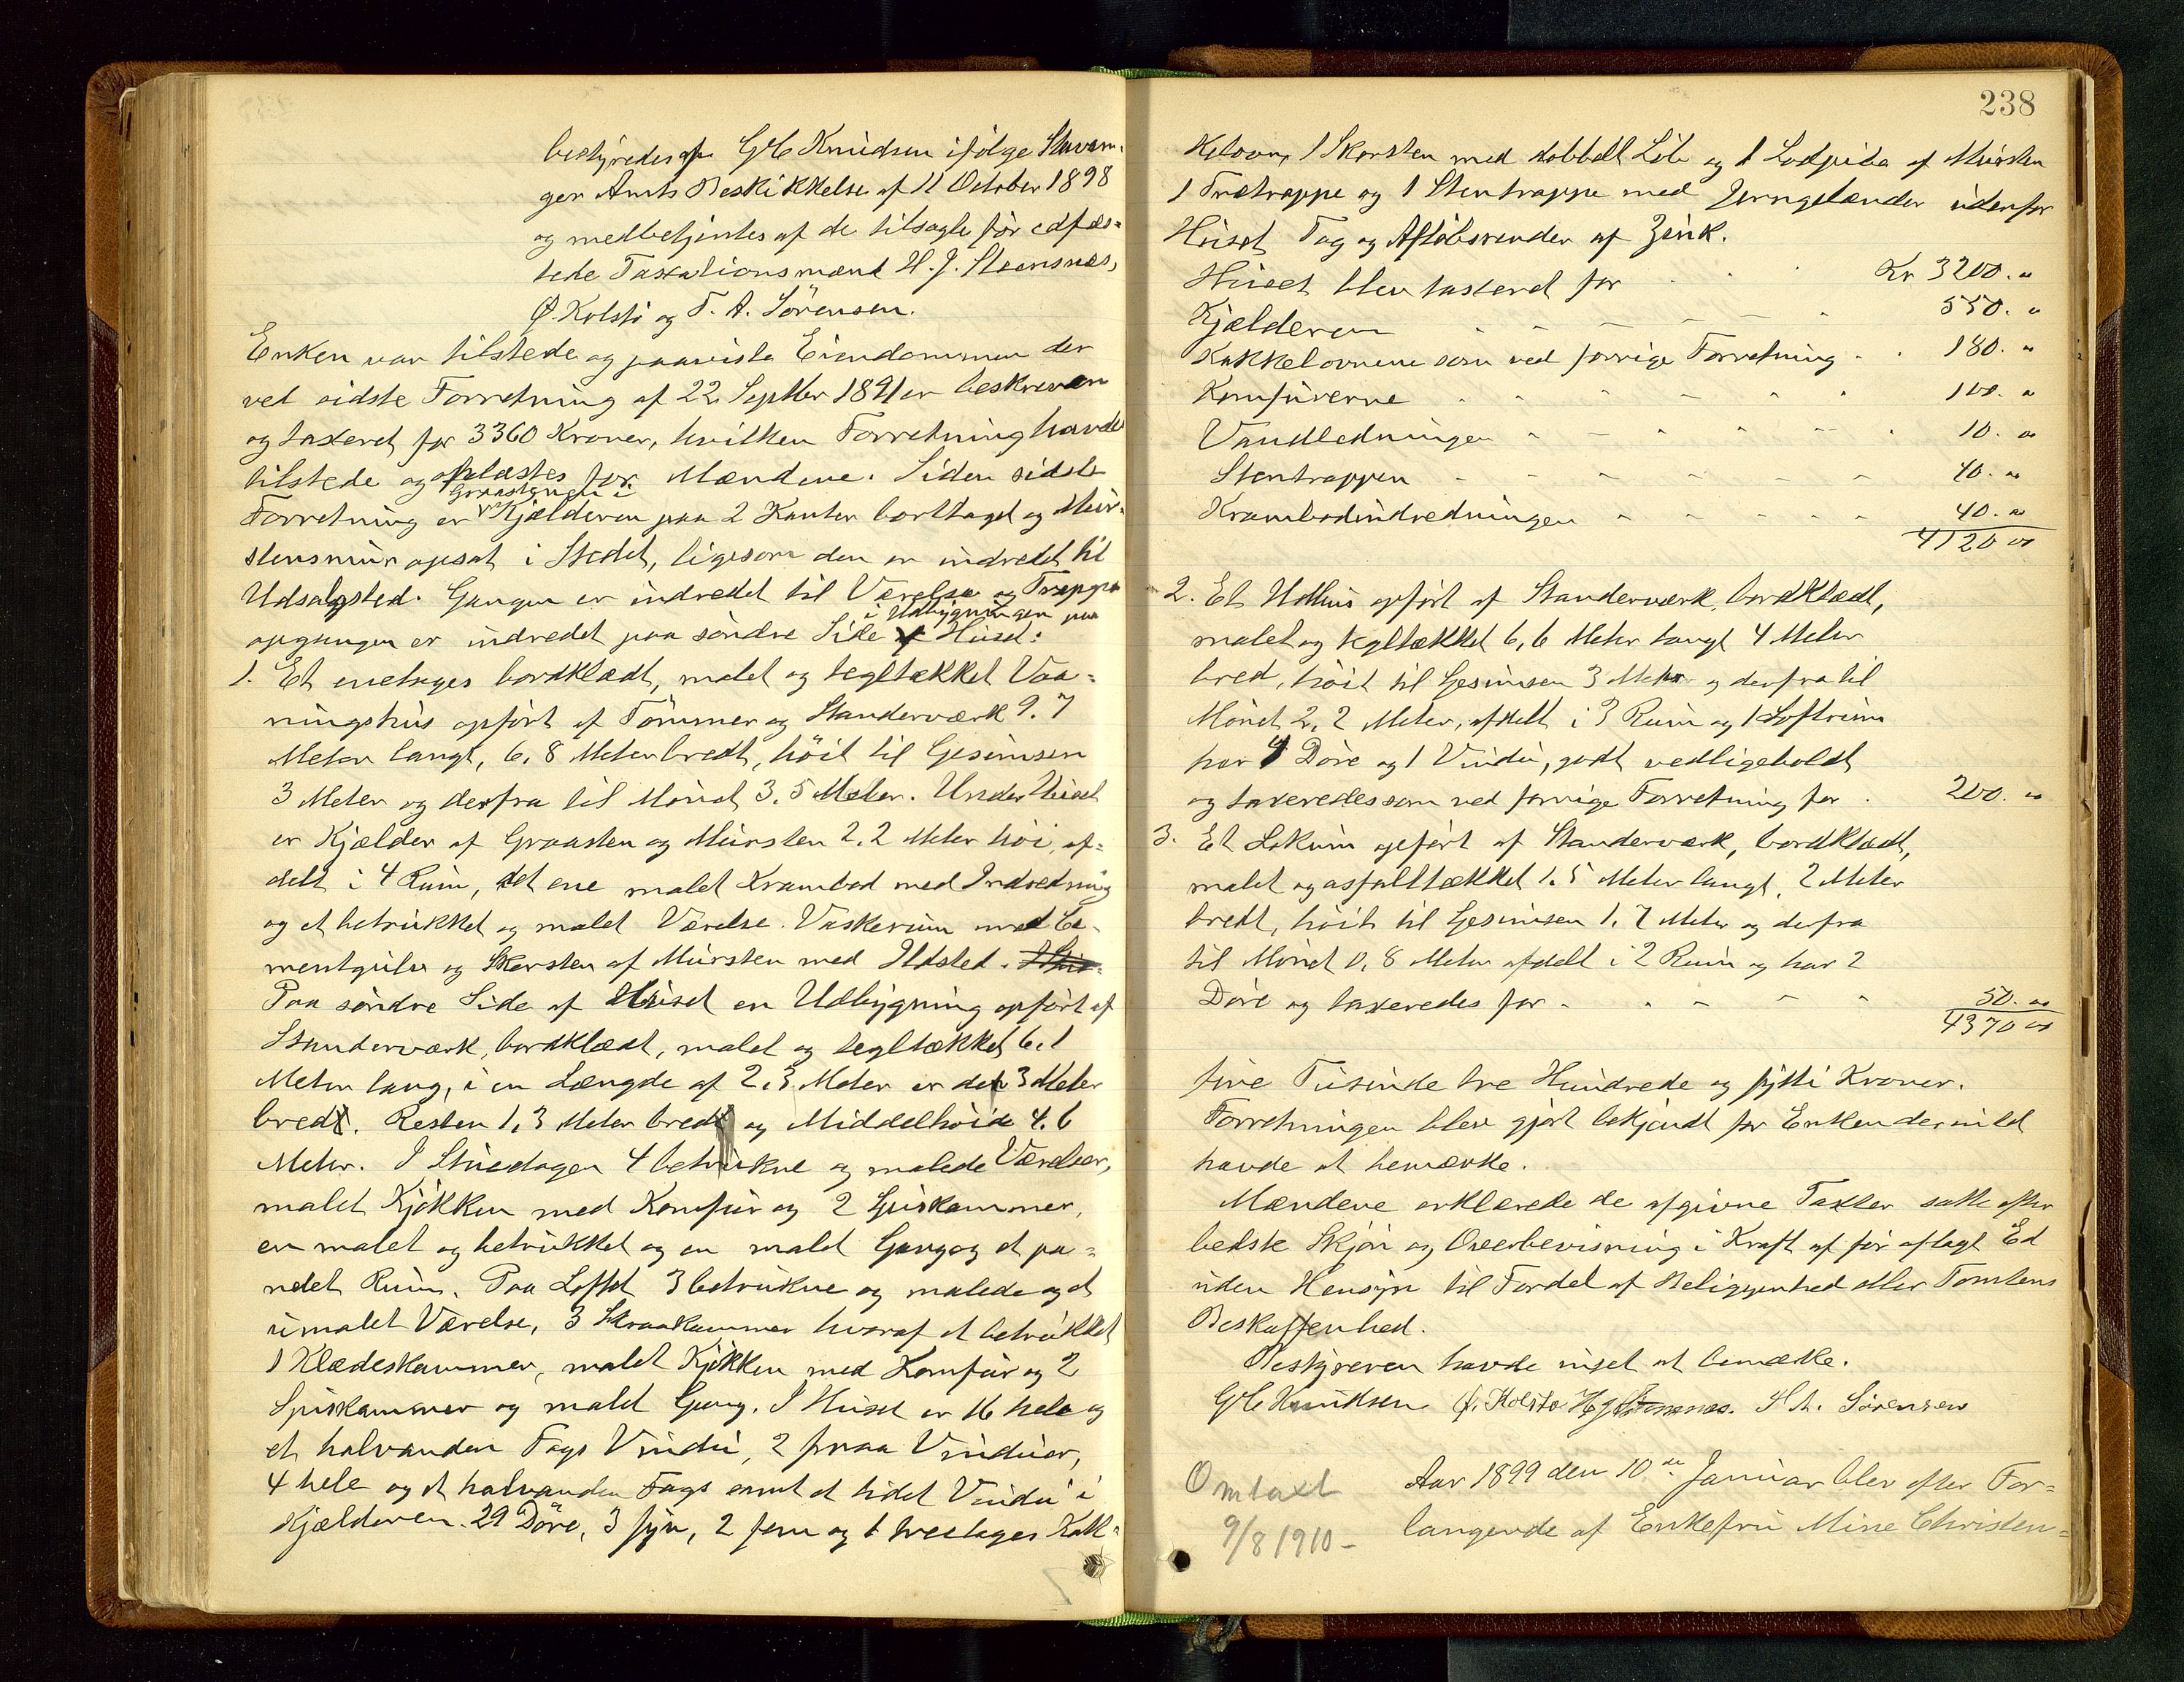 bestyredes af G Chr Knudsen ifølge Stavan-
ger Amts Beskikkelse af 11 October 1898
og medbetjentes af de tilsagte før edfæs-
tede Taxationsmænd H. J. Steensnæs,
Ø. Kolstø og T. A. Sörensen.
Enken var tilstede og paaviste Eiendommen der
ved sidste Forretning af 22 Septber 1891 er beskreven
og taxeret for 3360 Kroner, hvilken Forretning havdes
tilstede og oplæstes for Mændene. Siden sidste
Graastenen i
Forretning er Kjælderen paa 2 Kanter borttaget og Mur-
stensmur opsat i Stedet, ligesom den er indredet til
Udsalgsted. Gangen er indredet til Værelse og Trappe
i Udbygningen paa
opgangen er indredet paa söndre Side af Huset:
1. Et enetages bordklædt, malet og tegltækket Vaa-
ningshus opført af Tömmer og Standerværk 9.7
Meter langt, 6,8 Meter bredt, höit til Gesimsen
3 Meter og derfra til Mönet 3.5 Meter. Under Huset
er Kjælder af Graasten og Mursten 2.2 Meter höi, af-
delt i 4 Rum, det ene malet Krambod med Indredning
og et betrukket og malet Værelse. Vaskerum med Ce-
mentgulv og Skorsten af Mursten med Ildsted.
Paa söndre Side af Huset en Udbygning opfört af
Standerværk, bordklædt, malet og tegltækket 6.1
Meter lang, i en Længde af 2.3 Meter er den 3 Meter
bred. Resten 1,3 Meter bred og Middelhöide 4.6
Meter. I Stuedagen 4 betrukne og malede Værelser,
malet Kjøkken med Komfur og 2 Spiskammer,
en malet og betrukket og en malet Gang og et pa-
nelet Rum. Paa Loftet 3 betrukne og malede og et
umalet Værelse, 3 Skraakammer hvoraf et betrukket
1 Klædeskammer, malet Kjøkken med Komfur og 2
Spiskammer og malet Gang. I Huset er 16 hele og
et halvanden Fags Vindu, 2 smaa Vinduer,
4 hele og et halvanden Fags samt et lidet Vindu i
Kjælderen. 29 Döre, 3 fyr, 2 fem og 1 treetages Kak-
238
Kelovn, 1 Skorsten med dobbelt Löb og 1 Lodpibe af Mursten
1 Trætrappe og 1 Stentrappe med Jerngelænder udenfor
Huset Tag og Aflöbsrender af Zink.
Huset blev taxeret for Kr 3200. "
Kjælderen 550. "
Kakkelovnene som ved forrige Forretning 180. "
Komfurerne 100. "
Vandledningen 10. "
Stentrappen 40. "
Krambodindredningen 40. "
4120 "
2. Et Udhus opført af Standerværk, bordklædt,
malet og tegltækket 6,6 Meter langt 4 Meter
bred, höit til Gesimsen 3 Meter og derfra til
Mönet 2.2 Meter, afdelt i 3 Rum og 1 Loftrum
har 4 Döre og 1 Vindu, godt vedligeholdt
og taxeredes som ved forrige Forretning for 200. "
3. Et Lokum opført af Standerværk, bordklædt,
malet og asfalttækket 1.5 Meter langt, 2 Meter
bredt, höit til Gesimsen 1.7 Meter og derfra
til Mönet 0,8 Meter afdelt i 2 Rum og har 2
Döre og taxeredes for 50. "
4370 "
fire Tusinde tre Hundrede og sytti Kroner.
Forretningen blev gjort bekjendt for Enken der intet
havde at bemærke.
Mændene erklærede de afgivne Taxter satte efter
bedste Skjøn og Overbevisning i Kraft af før aflagt Ed
uden Hensyn til Fordel af Beliggenhed eller Tomtens
Beskaffenhed.
Bestyreren havde intet at bemærke.
G Chr Knudsen Ø. Kolstø H J Steensnæs. T A. Sörensen
Omtaxt
9/8 1910-
Aar 1899 den 10de Januar blev efter For-
langende af Enkefru Mine Christen-